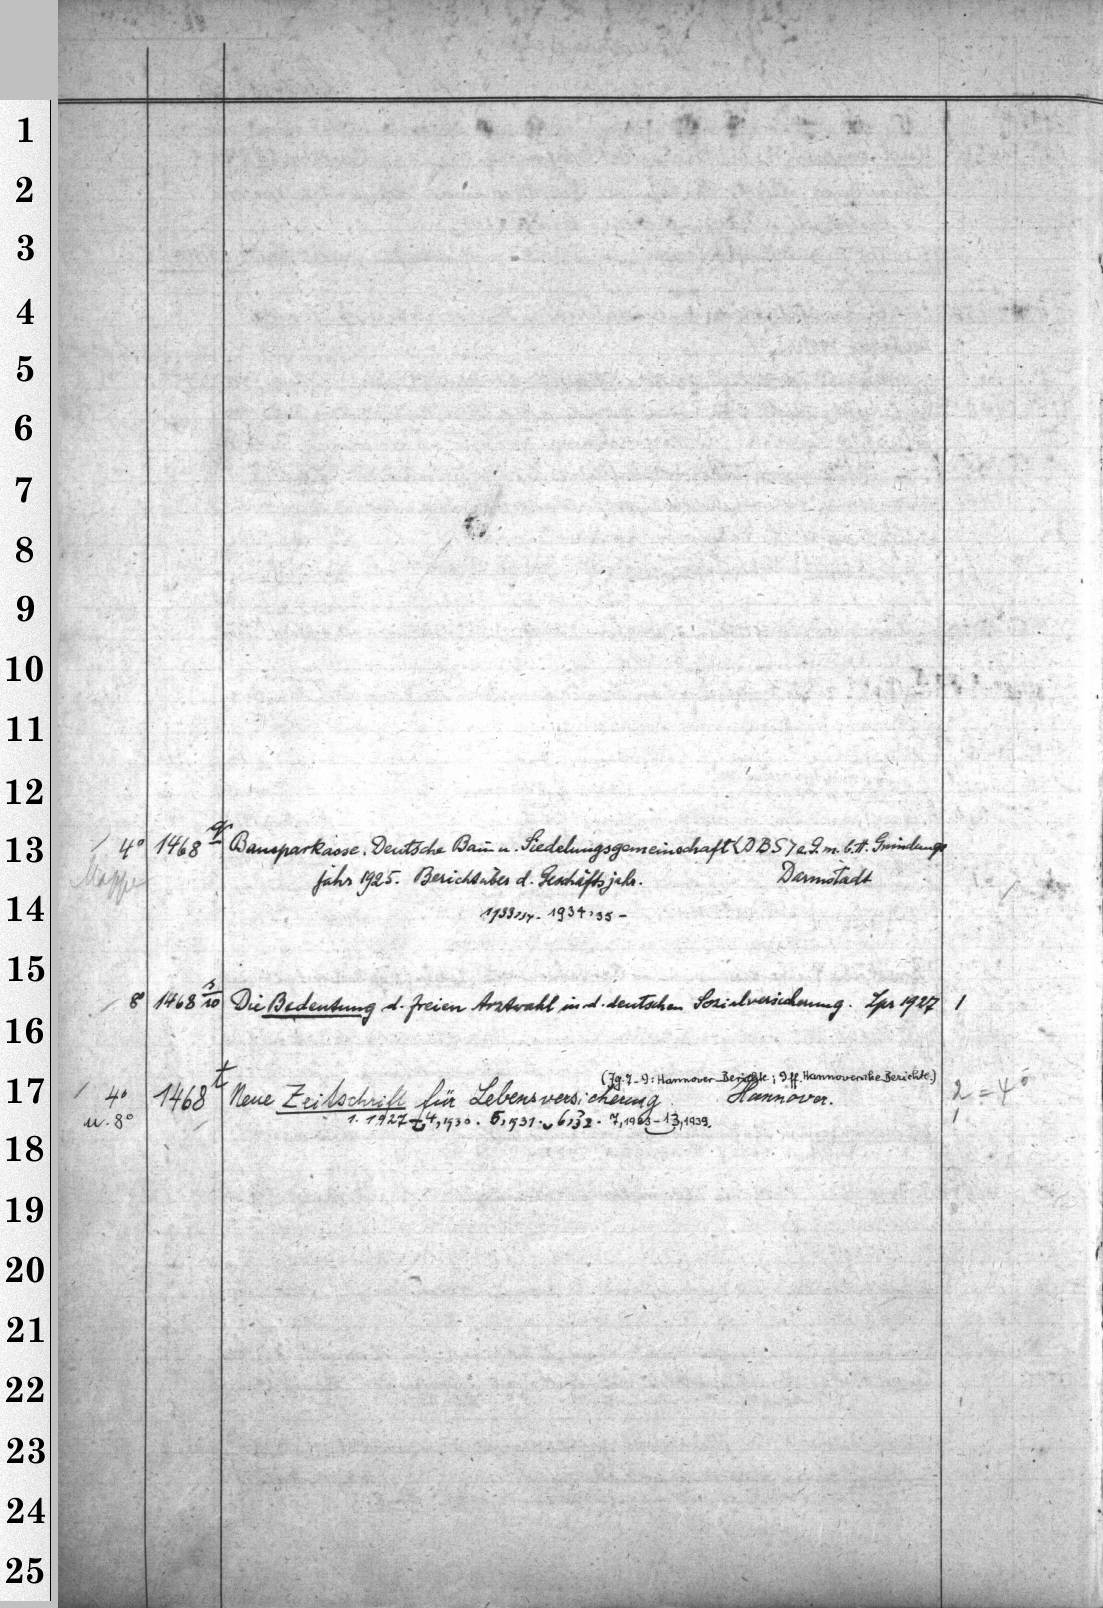 1
2
3
4
5
6
7
8
9
10
11
12
13 / 4° 1468 q Bausparkasse, Deutsche Bau u. Siedelungsgemeinschaft <DBS> e.G.m.b.H. Gründungs
Mappe jahr 1925. Bericht über d. Geschäftsjahr. Darmstadt
14 1933/34 - 1934/35 -
15
/ 8° 1468 s/10 Die Bedeutung d. freien Arztwahl in d. deutschen Sozialversicherung. Lpz 1927 1
16
(Jg. 7-9: Hannover Berichte; 9 ff. Hannoversche Berichte.)
17 / 4° 1468 t Neue Zeitschrift für Lebensversicherung. Hannover. 2 = 4°
u. 8° 1. 1927 - 4,1930. 5,1931. 6,32. 7, - 13,1939. 1
18
19
20
21
22
23
24
25